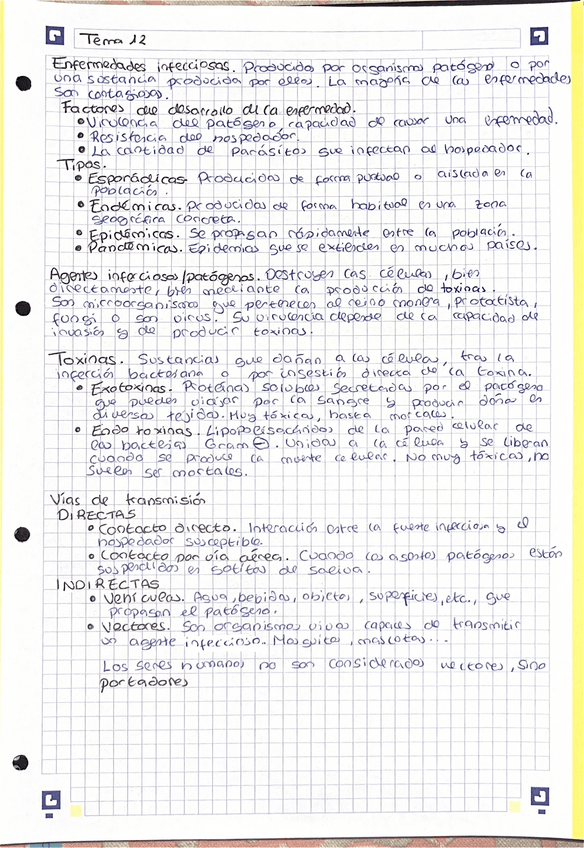 Tema 12
Enfermedades infecciosas. Producida por organismo patógeno o por
una sustancia producida por ellos. La mayoría de las enfermedades
son contagiosas.
Factores del desarrollo de la enfermedad.
• Virulencia del patógeno capacidad de causar una enfermedad.
• Resistencia del hospedador.
• La cantidad de parásitos que infectan al hospedador.
Tipos.
• Esporádicas. Producidas de forma puntual o aislada en la
población.
• Endémicas. Producidas de forma habitual en una zona
geográfica concreta.
• Epidémicas. Se propagan rápidamente entre la población.
• Pandémicas. Epidemias que se extienden en muchos países.
Agentes infecciosos/patógenos. Destruyen las células, bien
directamente, bien mediante la producción de toxinas.
Son microorganismos que pertenecen al reino monera, protoctista,
fungi o son virus. Su virulencia depende de la capacidad de
invasión y de producir toxinas.
Toxinas. Sustancias que dañan a las células, tras la
infección bacteriana o por ingestión directa de la toxina.
• Exotoxinas. Proteínas solubles secretadas por el patógeno
que pueden viajar por la sangre y producir daño en
diversos tejidos. Muy tóxicas, hasta mortales.
• Endotoxinas. Lipopolisacáridos de la pared celular de
las bacterias Gram ⊖. Unidas a la célula y se liberan
cuando se produce la muerte celular. No muy tóxicas, no
suelen ser mortales.
Vías de transmisión
DIRECTAS
• Contacto directo. Interacción entre la fuente infecciosa y el
hospedador susceptible.
• Contacto por vía aérea. Cuando los agentes patógenos están
suspendidos en gotitas de saliva.
INDIRECTAS
• Vehículos. Agua, bebidas, objetos, superficies, etc., que
propagan el patógeno.
• Vectores. Son organismos vivos capaces de transmitir
un agente infeccioso. Mosquitos, mascotas...
Los seres humanos no son considerados vectores, sino
portadores